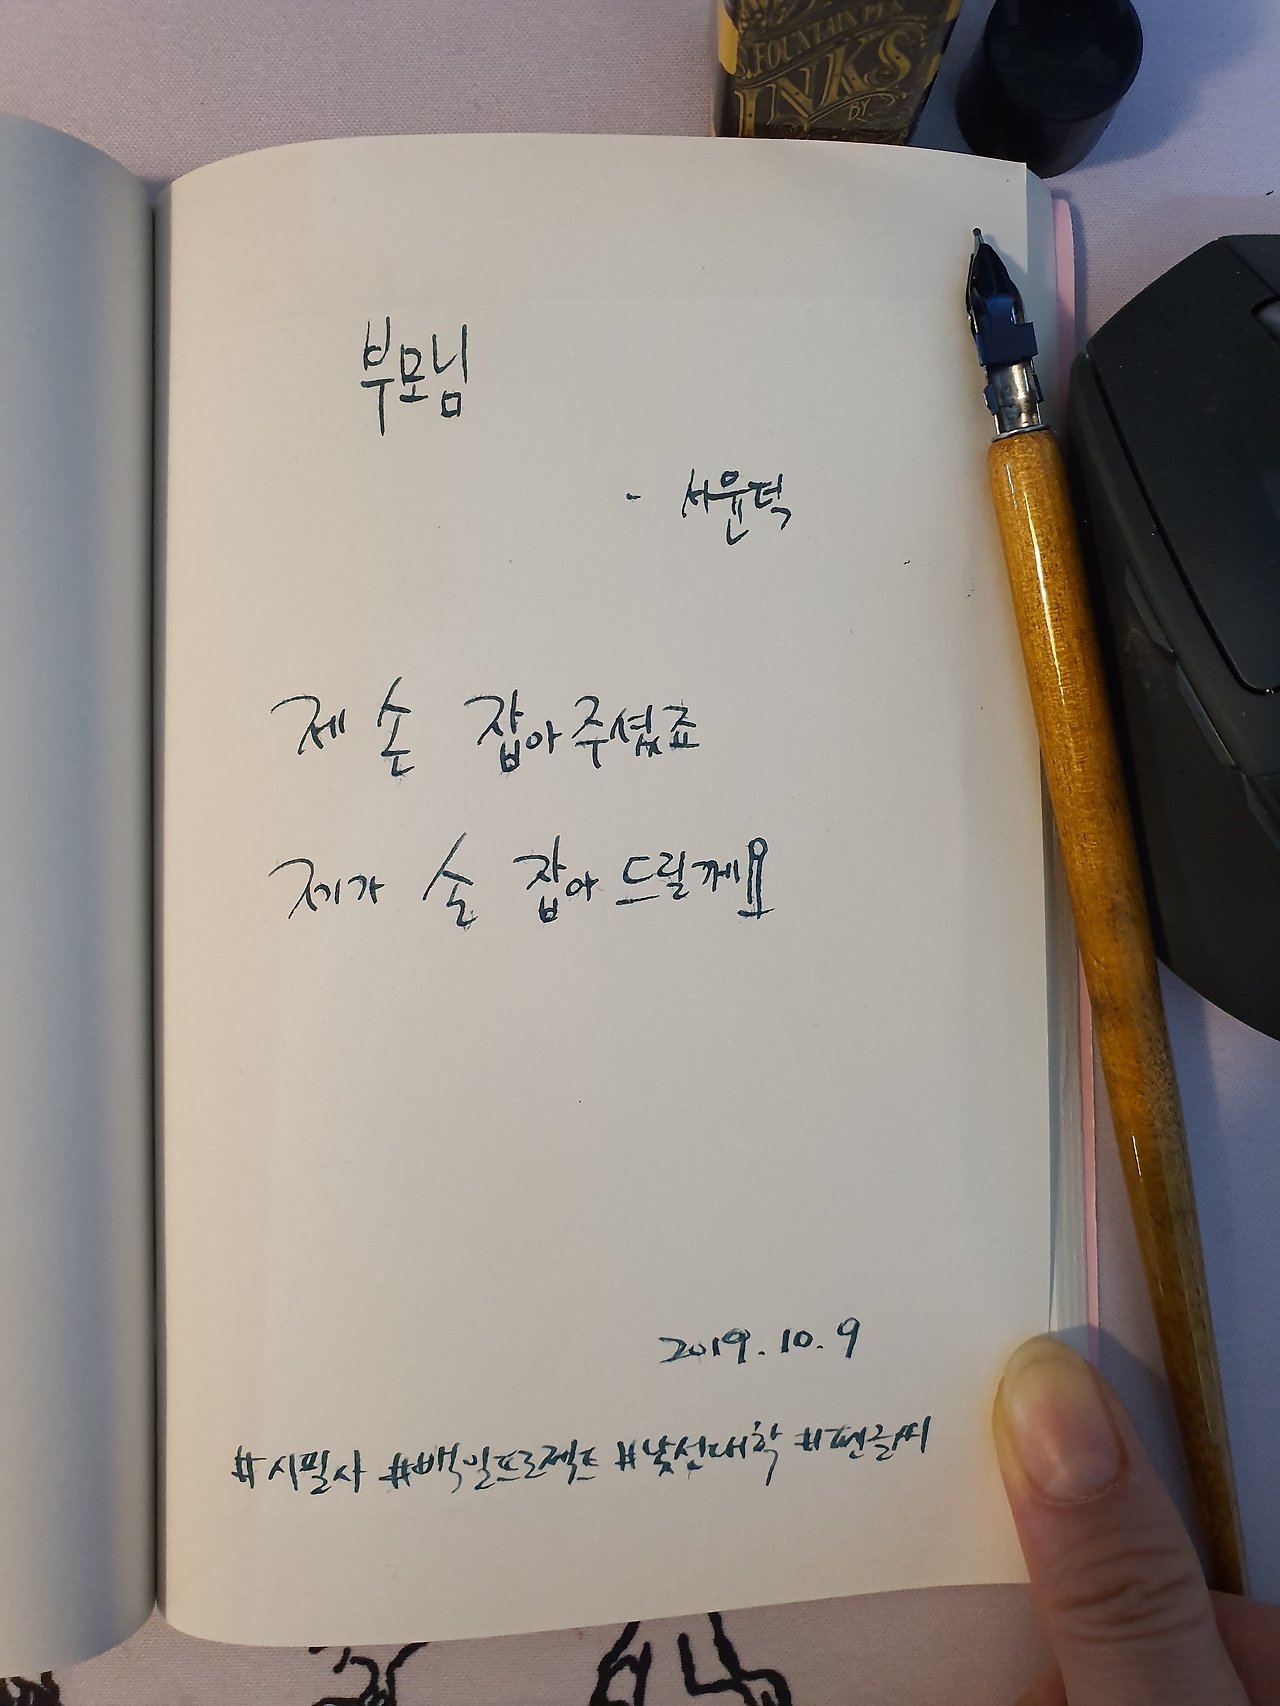 S. FOUNTAIN PEN
INKS
BY
부모님
- 서윤덕
제 손 잡아주셨죠
제가 손 잡아 드릴께요
2019. 10. 9
#시필사 #백일프로젝트 #낯선대학 #펜글씨